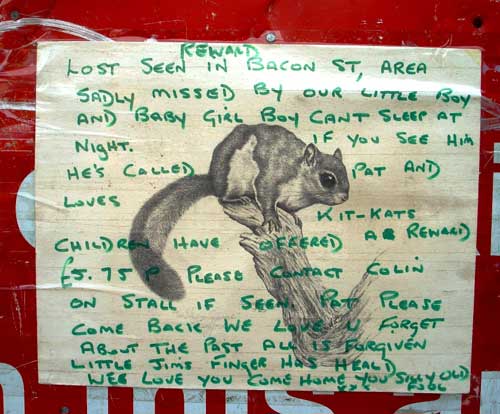 REWARD
LOST SEEN IN BACON ST, AREA
SADLY MISSED BY OUR LITTLE BOY
AND BABY GIRL BOY CANT SLEEP AT
NIGHT. IF YOU SEE HIM
HE'S CALLED PAT AND
LOVES KIT-KATS
CHILDREN HAVE OFFERED AS REWARD
£5.75P PLEASE CONTACT COLIN
ON STALL IF SEEN. PAT PLEASE
COME BACK WE LOVE U FORGET
ABOUT THE PAST ALL IS FORGIVEN
LITTLE JIMS FINGER HAS HEALD
WEE LOVE YOU COME HOME YOU SILLY OLD
XXX FOOL